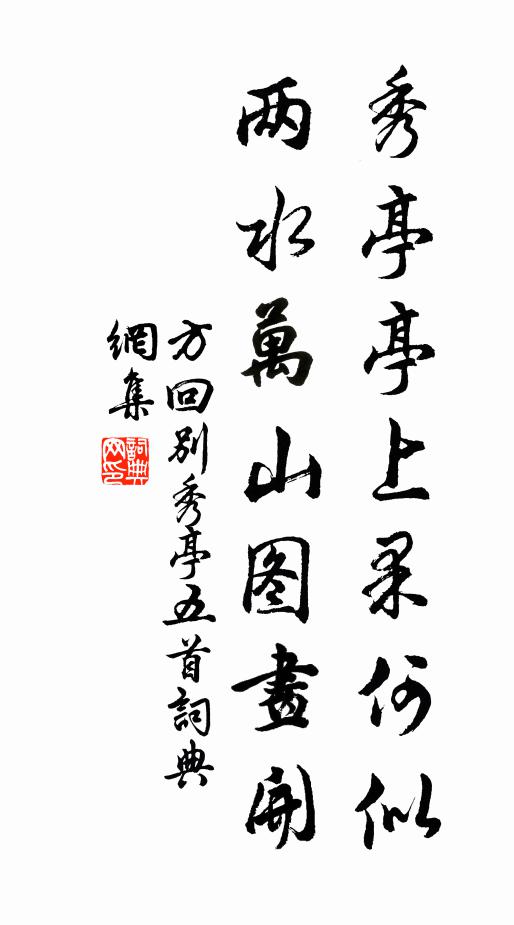 秀亭亭上果何似
两水萬山图畫開
方回别秀亭五首詞典
網集
詞典網印